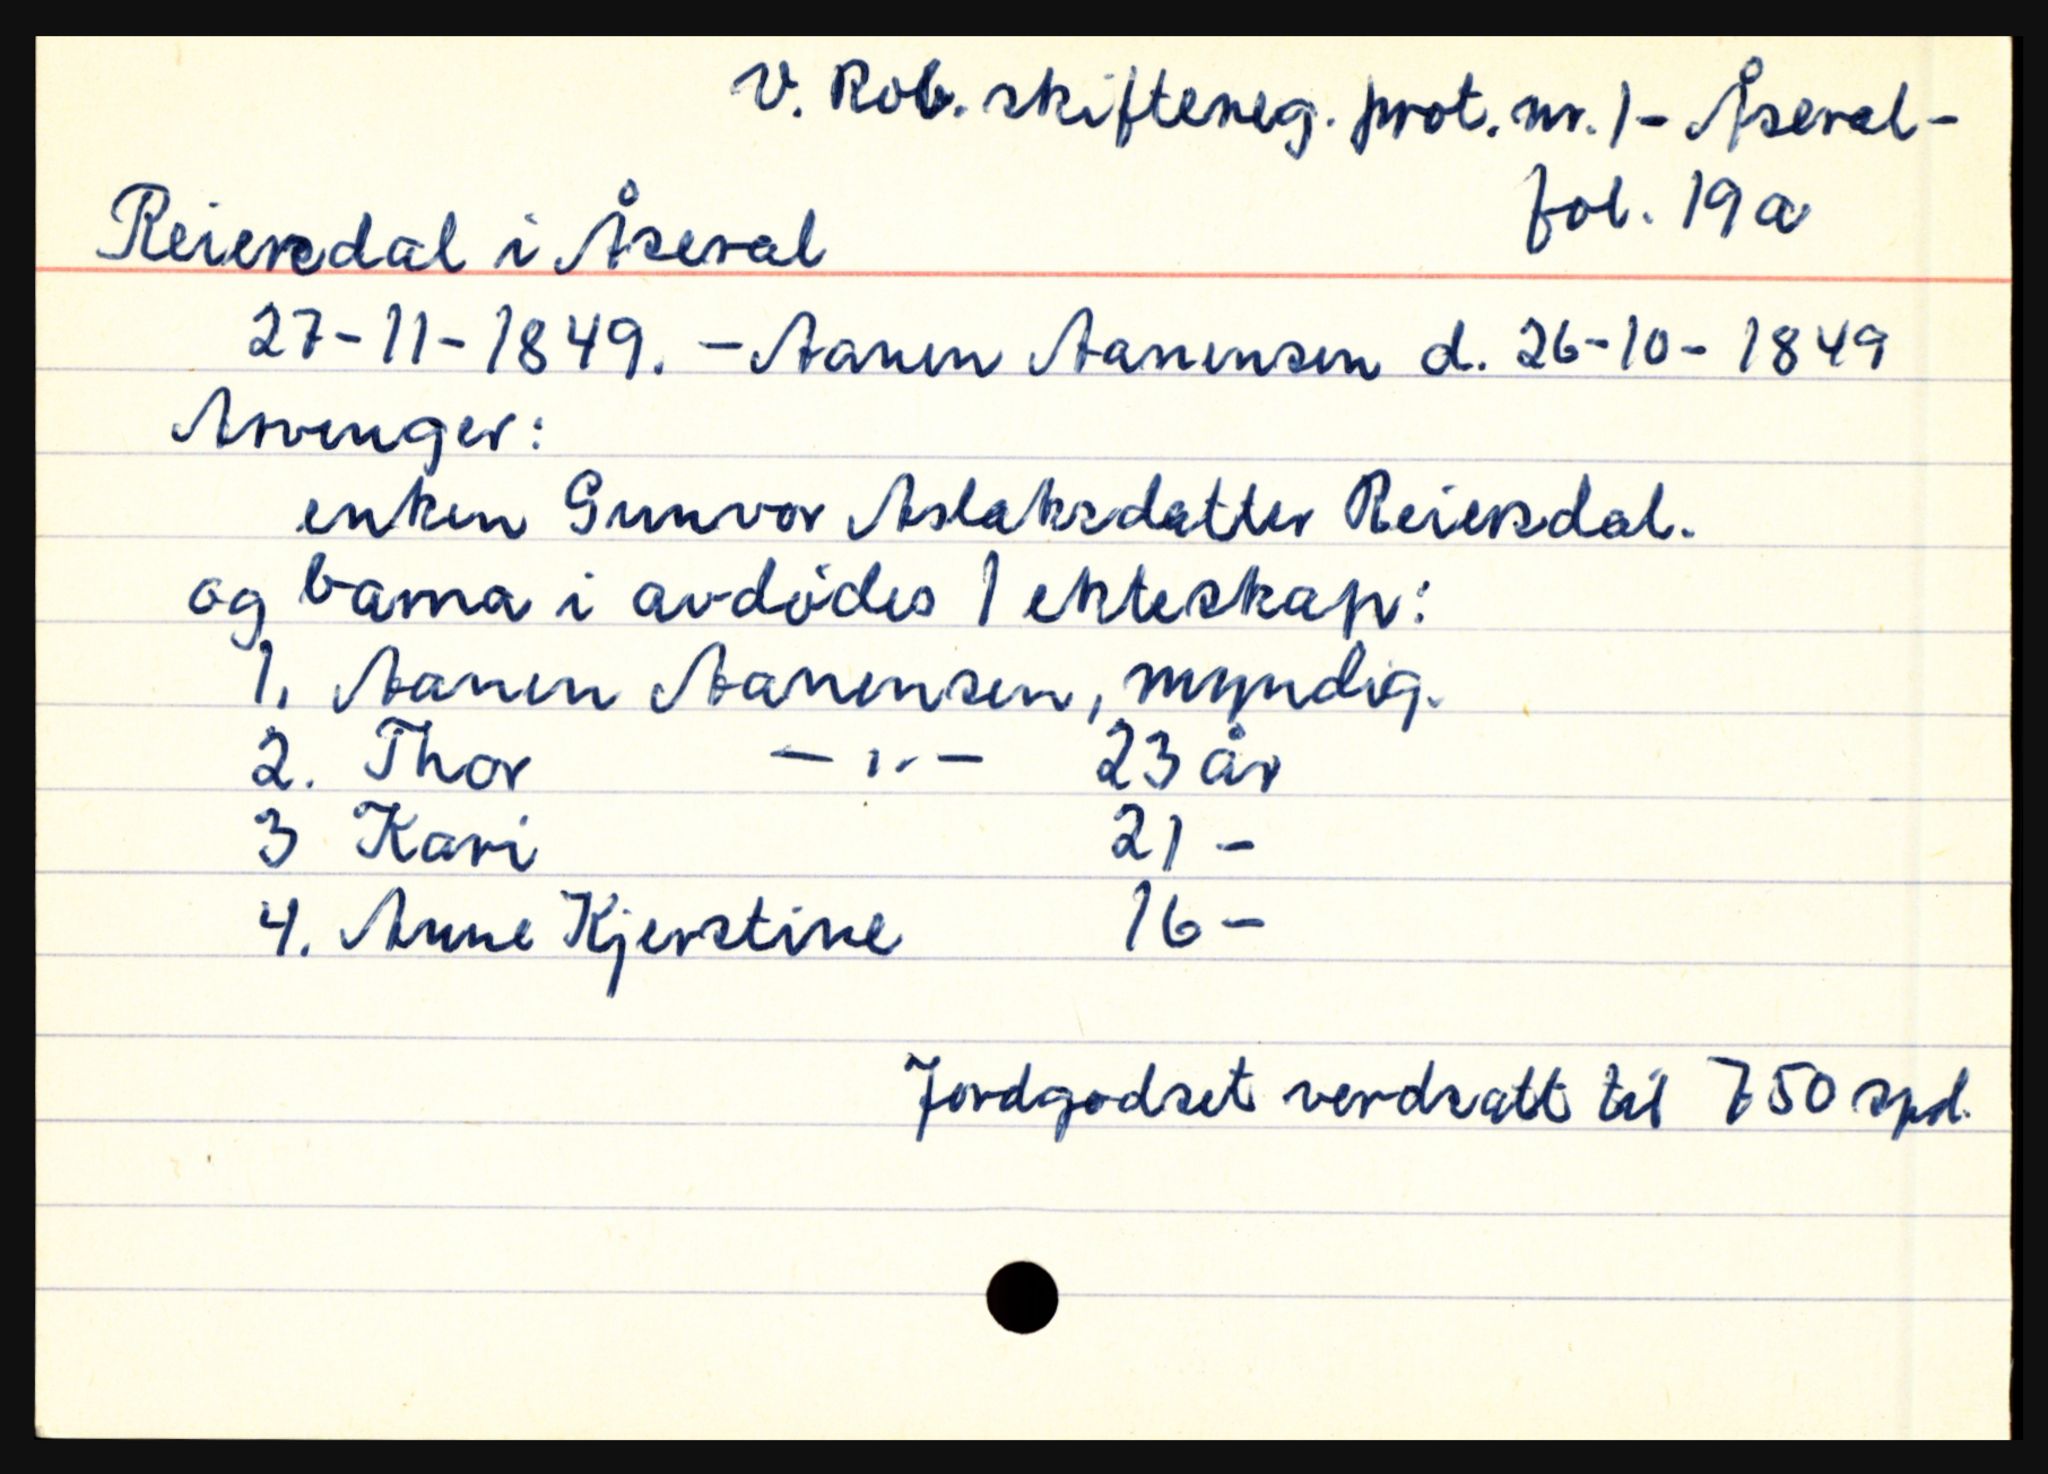 V. Rob. skiftereg. prot. nr. 1 - Åseral -
fol. 19a
Reiersdal i Åseral
27-11-1849. - Aanen Aanensen d. 26-10-1849
Arvinger:
enken Gunvor Aslaksdatter Reiersdal.
og barna i avdødes 1 ekteskap:
1. Aanen Aanensen, myndig.
2. Thor -„- 23 år
3 Kari 21 -
4. Anne Kjerstine 16 -
Jordgodset verdsatt til 750 spd.